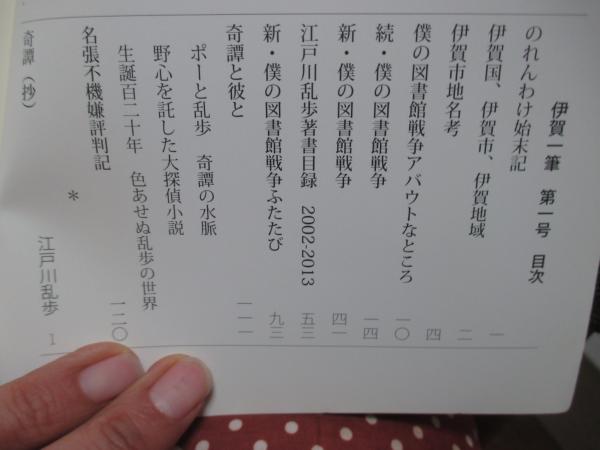 伊賀一筆 第一号 目次
のれんわけ始末記 一
伊賀国、伊賀市、伊賀地域 二
伊賀市地名考 四
僕の図書館戦争アバウトなところ 一〇
続・僕の図書館戦争 一四
新・僕の図書館戦争 四一
江戸川乱歩著書目録 2002-2013 五三
新・僕の図書館戦争ふたたび 九三
奇譚と彼と 一一一
ポーと乱歩 奇譚の水脈
野心を託した大探偵小説
生誕百二十年 色あせぬ乱歩の世界
名張不機嫌評判記 一二〇
*
奇譚(抄) 江戸川乱歩 1